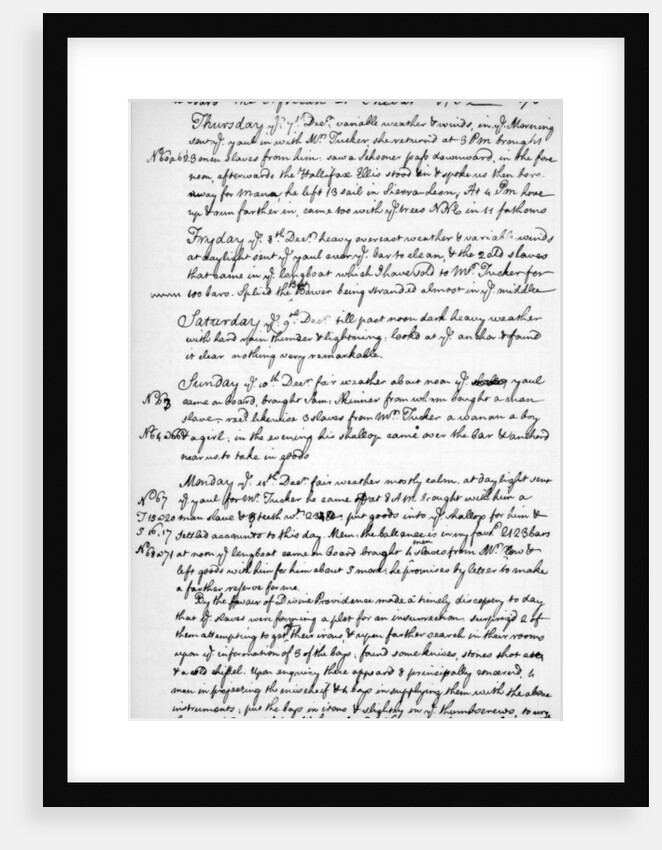 Thursday ye 7th Decr variable weather & winds, in ye Morning
sent ye yaul in with Mr Tucker, she returnd at 3 Pm brought
No 60 a 62 3 men slaves from him: saw a Schooner pass downward, in the fore
noon, afterwards the Hallifax Ellis stood in & spoke us then bore
away for Mana, he left 13 sail in Sierra leon; At 4 Pm hove
up & run farther in, came too with ye trees NNE in 11 fathoms
Fryday ye 8th Decr heavy overcast weather & variable winds
at daylight sent ye yaul over ye bar to clean, & the 2 old slaves
that came in ye longboat which I have sold to Mr Tucker for
100 bars. Spliced the Bt Bower being stranded almost in ye middle
Saturday ye 9th Decr till past noon dark heavy weather
with hard rain thunder & lightning: lookd at ye anchor & found
it clear nothing very remarkable.
Sunday ye 10th Decr fair weather about noon ye yaul
No 63 came on board, brought Sam: Skinner from whom bought a man
slave, recd likewise 3 slaves from Mr Tucker a woman a boy
No 64 a 66 & a girl; in the evening his shallop came over the bar & anchord
near us to take in goods
Monday ye 11th Decr fair weather mostly calm, at daylight sent
No 67 ye yaul for Mr Tucker he came at 8 A M. brought with him a
man slave & teeth wt put goods into ye shallop for him &
settled accounts to this day. Mem: the ballance is in my favr 2123 bars
No 68 a 71 at noon ye longboat came on board brought 4 men slaves from Mr &
left goods with him for him about 5 more; he promises by letter to make
a farther reserve for me.
By the favour of Divine Providence made a timely discovery to day
that ye slaves were forming a plot for an insurrection, surprizd 2 of
them attempting to get off their irons, & upon farther search in their rooms
upon ye information of 3 of the boys, found some knives, stones shot etc
& a cold chissel. Upon enquiry there appeard 8 principally concerned, 4
men in projecting the mischeif & 4 boys in supplying them with the above
instruments; put the boys in irons & slightly in ye thumbscrews, to urge